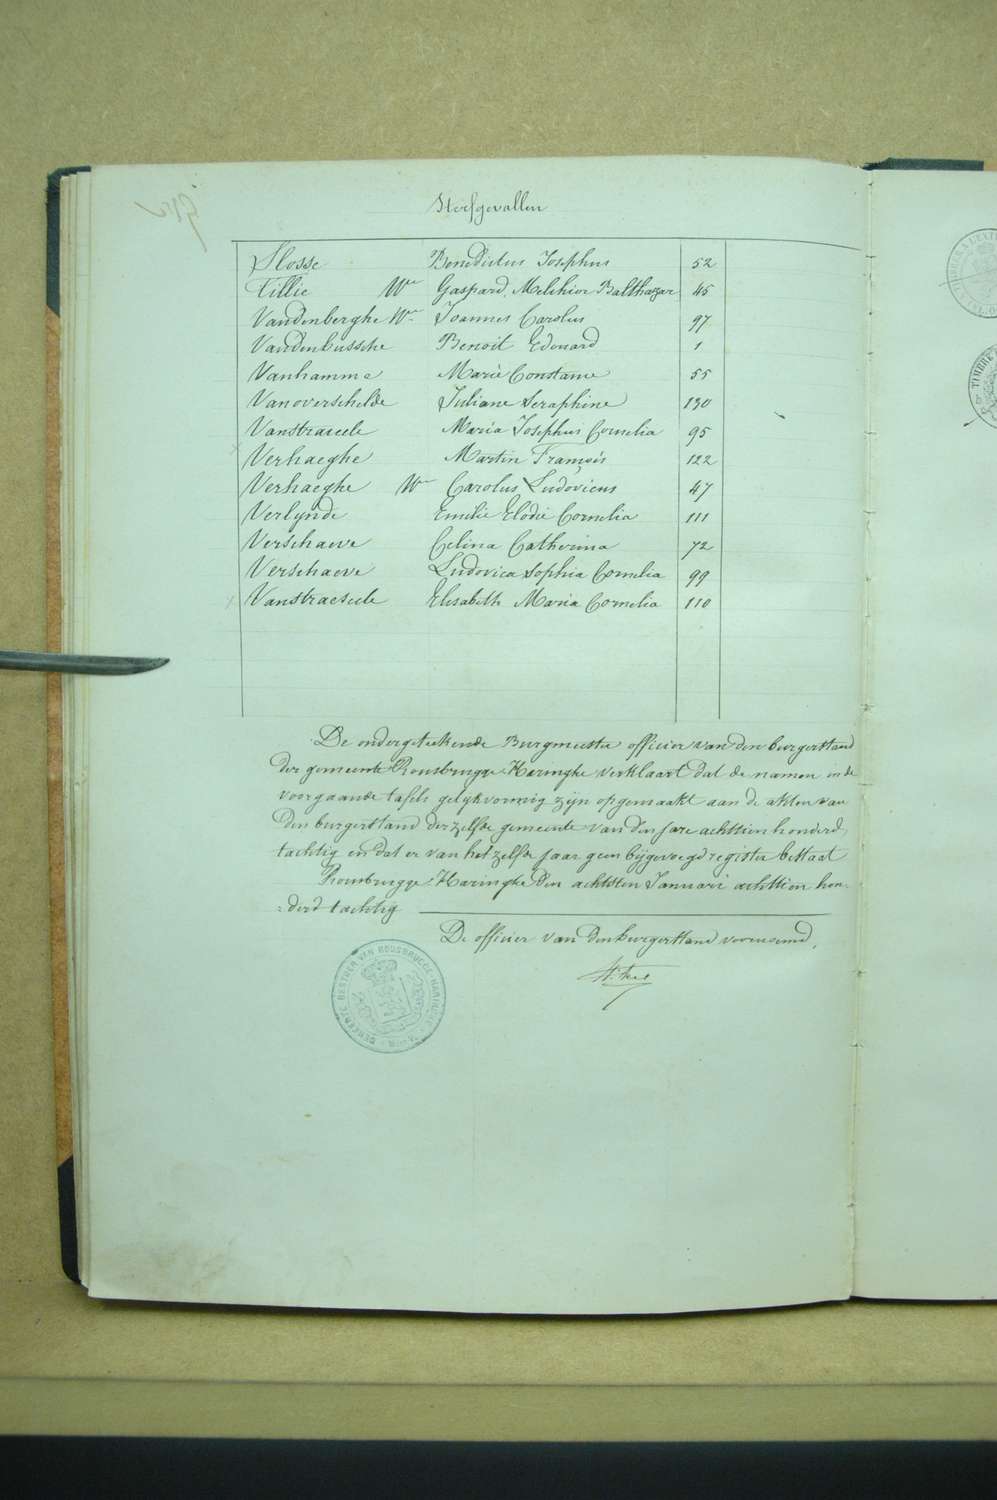 Sterfgevallen
Slosse Benedictus Josephus 52
Tillie We Gaspard Melchior Balthazar 45
Vandenberghe We Joannes Carolus 97
Vandenbussche Benoit Edouard 1
Vanhamme Marie Constance 55
Vanoverschelde Juliane Seraphine 130
Vanstraceele Maria Josephus Cornelia 95
Verhaeghe Martin François 122
Verhaeghe We Carolus Ludovicus 47
Verlynde Emilie Elodie Cornelia 111
Verschaeve Celina Catherina 72
Verschaeve Ludovica Sophia Cornelia 99
Vanstraeseele Elisabeth Maria Cornelia 110
De ondergeteekende Burgmeester officier van den burgerstand
der gemeente Rousbrugge-Haringhe verklaart dat de namen in de
voorgaande tafels gelijkvormig zijn opgemaakt aan de akten van
den burgerstand derzelfde gemeente van den jare achttien honderd
tachtig en dat er van het zelfde jaar geen bijgevoegd register bestaat
Rousbrugge-Haringhe den achtsten Januari achttien hon-
:derd tachtig
De officier van den burgerstand voornoemd,
GEMEENTE BESTUER VAN ROUSBRUGGE-HARINGHE
TIMBRE